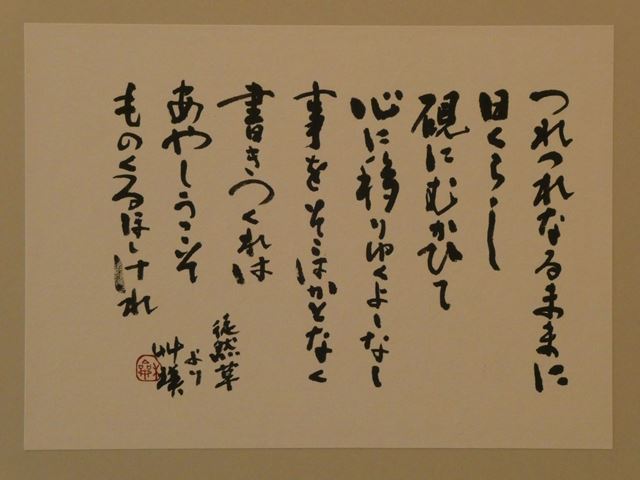 つれつれなるままに
日くらし
硯にむかひて
心に移りゆくよしなし
事をそこはかとなく
書きつくれは
あやしうこそ
ものくるほしけれ
徒然草
より
艸